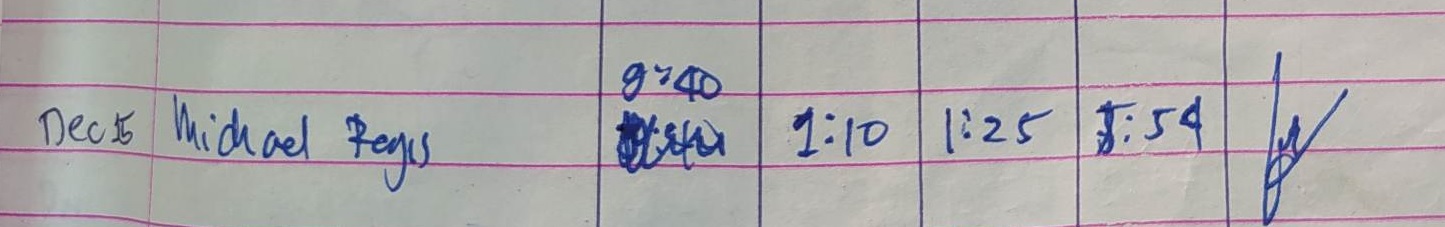 9:40
Dec 15 Michael Regis 1:10 1:25 5:54